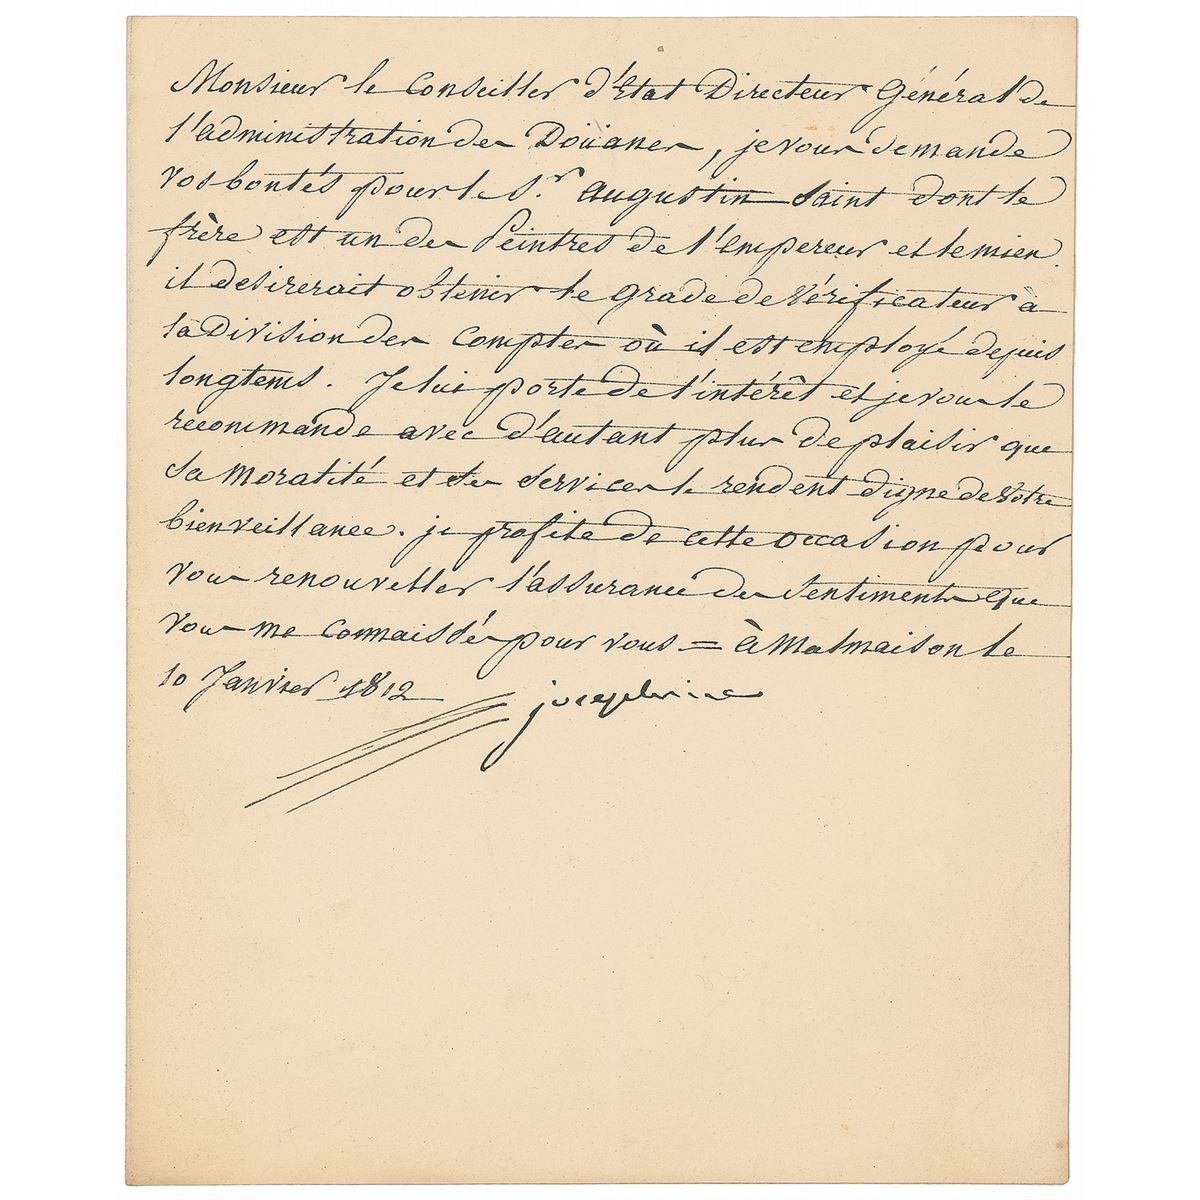 Monsieur le Conseiller d'Etat Directeur Général de
l'administration des Doüanes, je vous demande
vos bontés pour le S.r augustin Saint dont le
frère est un des Peintres de l'empereur et le mien.
il desirerait obtenir le grade de Vérificateur à
la Division des Comptes où il est employé depuis
longtems. Je lui porte de l'intérêt et je vous le
recommande avec d'autant plus de plaisir que
sa moralité et ses services le rendent digne de Votre
bienveillance. je profite de cette occasion pour
vous renouveller l'assurance des sentiments que
vous me connaissés pour vous = à Malmaison le
10 Janvier 1812
josephine